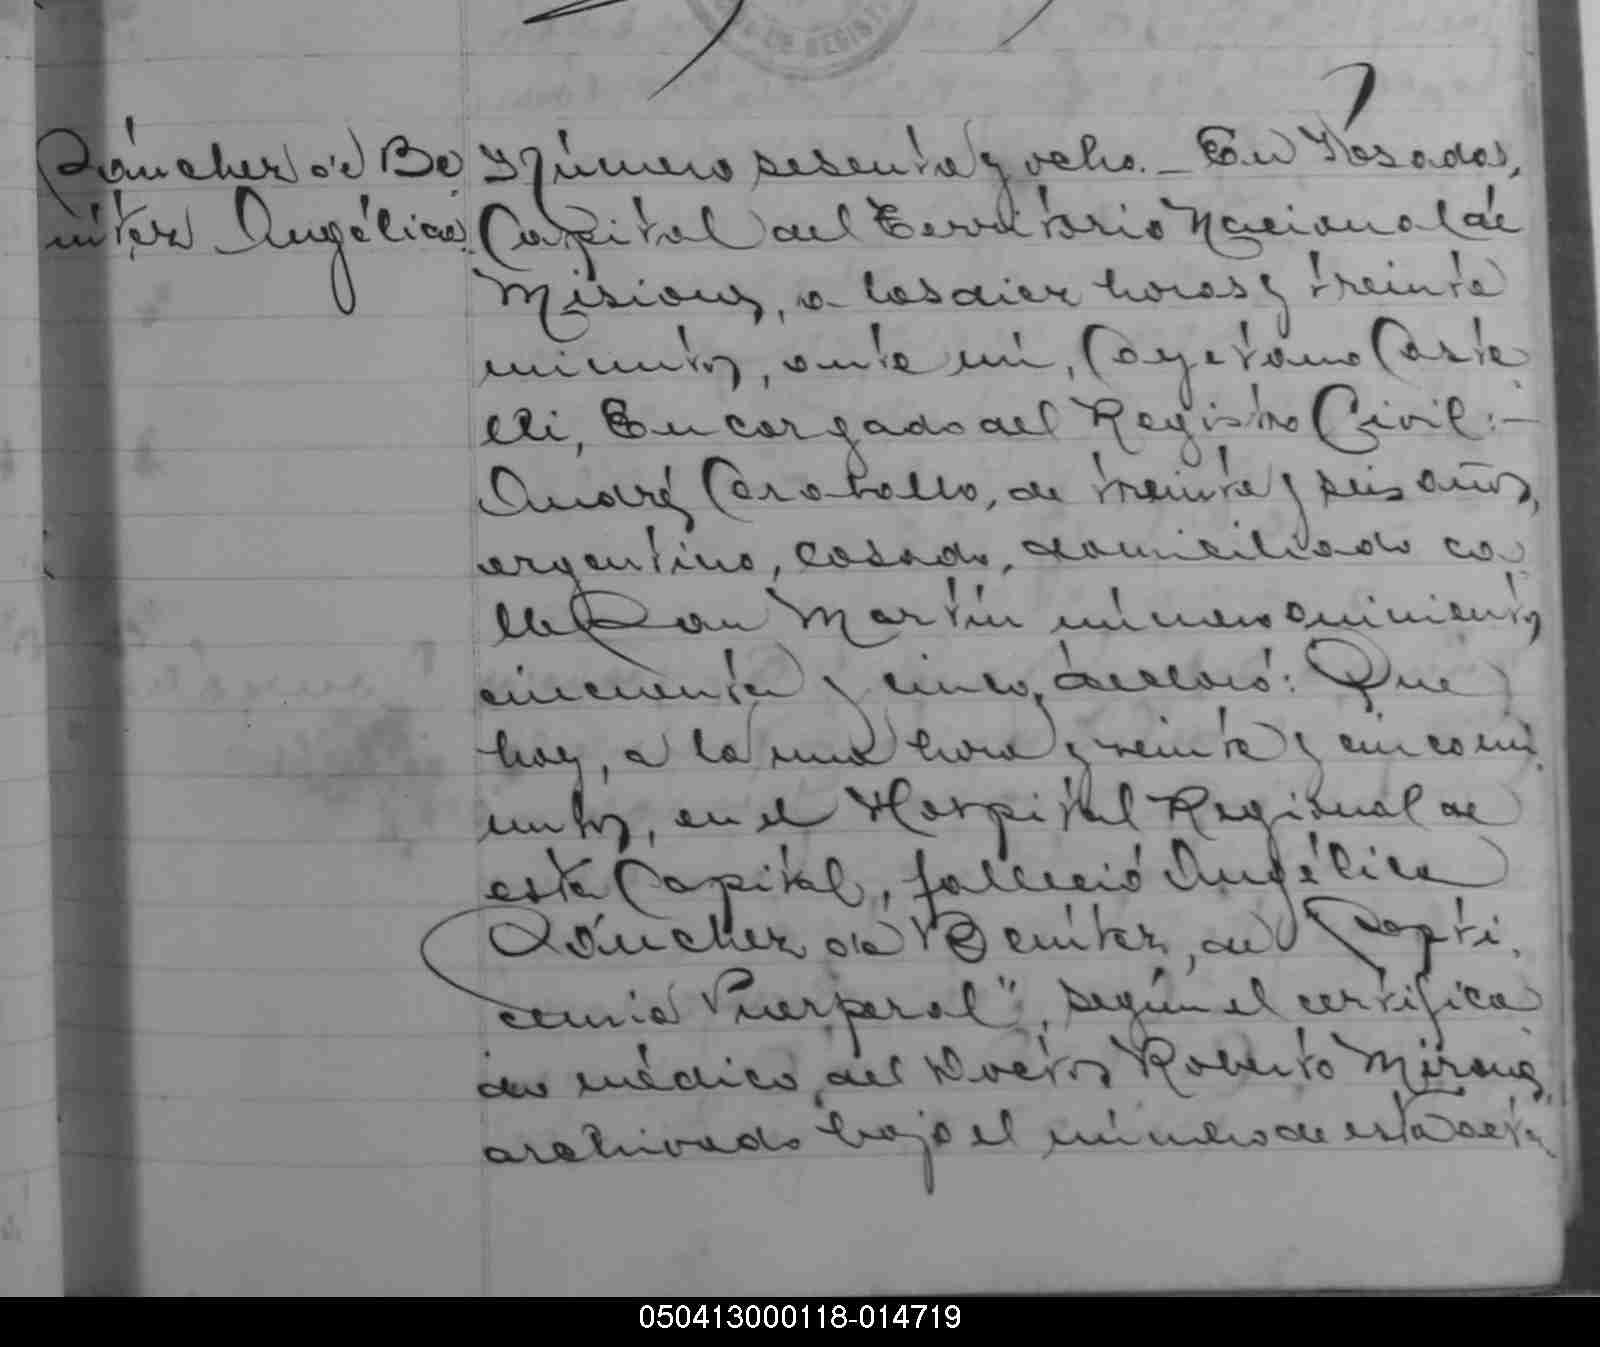 Sánchez de Be
nítez Angélica.
Número sesenta y ocho. _ En Posadas,
Capital del Territorio Nacional de
Misiones, a las diez horas y treinta
minutos, ante mi, Cayetano Caste
lli, Encargado del Registro Civil: -
Andrés Caraballo, de treinta y seis años,
argentino, casado, domiciliado ca
lle San Martín número quinientos
cincuenta y cinco, declaró: Que
hoy, a la una hora y veinte y cinco mi
nutos, en el Hospital Regional de
esta Capital, falleció Angélica
Sánchez de Benítez, de Septi
cemia Puerperal", según el certifica
do médico del Doctor Roberto
archivado bajo el número de esta acta
050413000118-014719